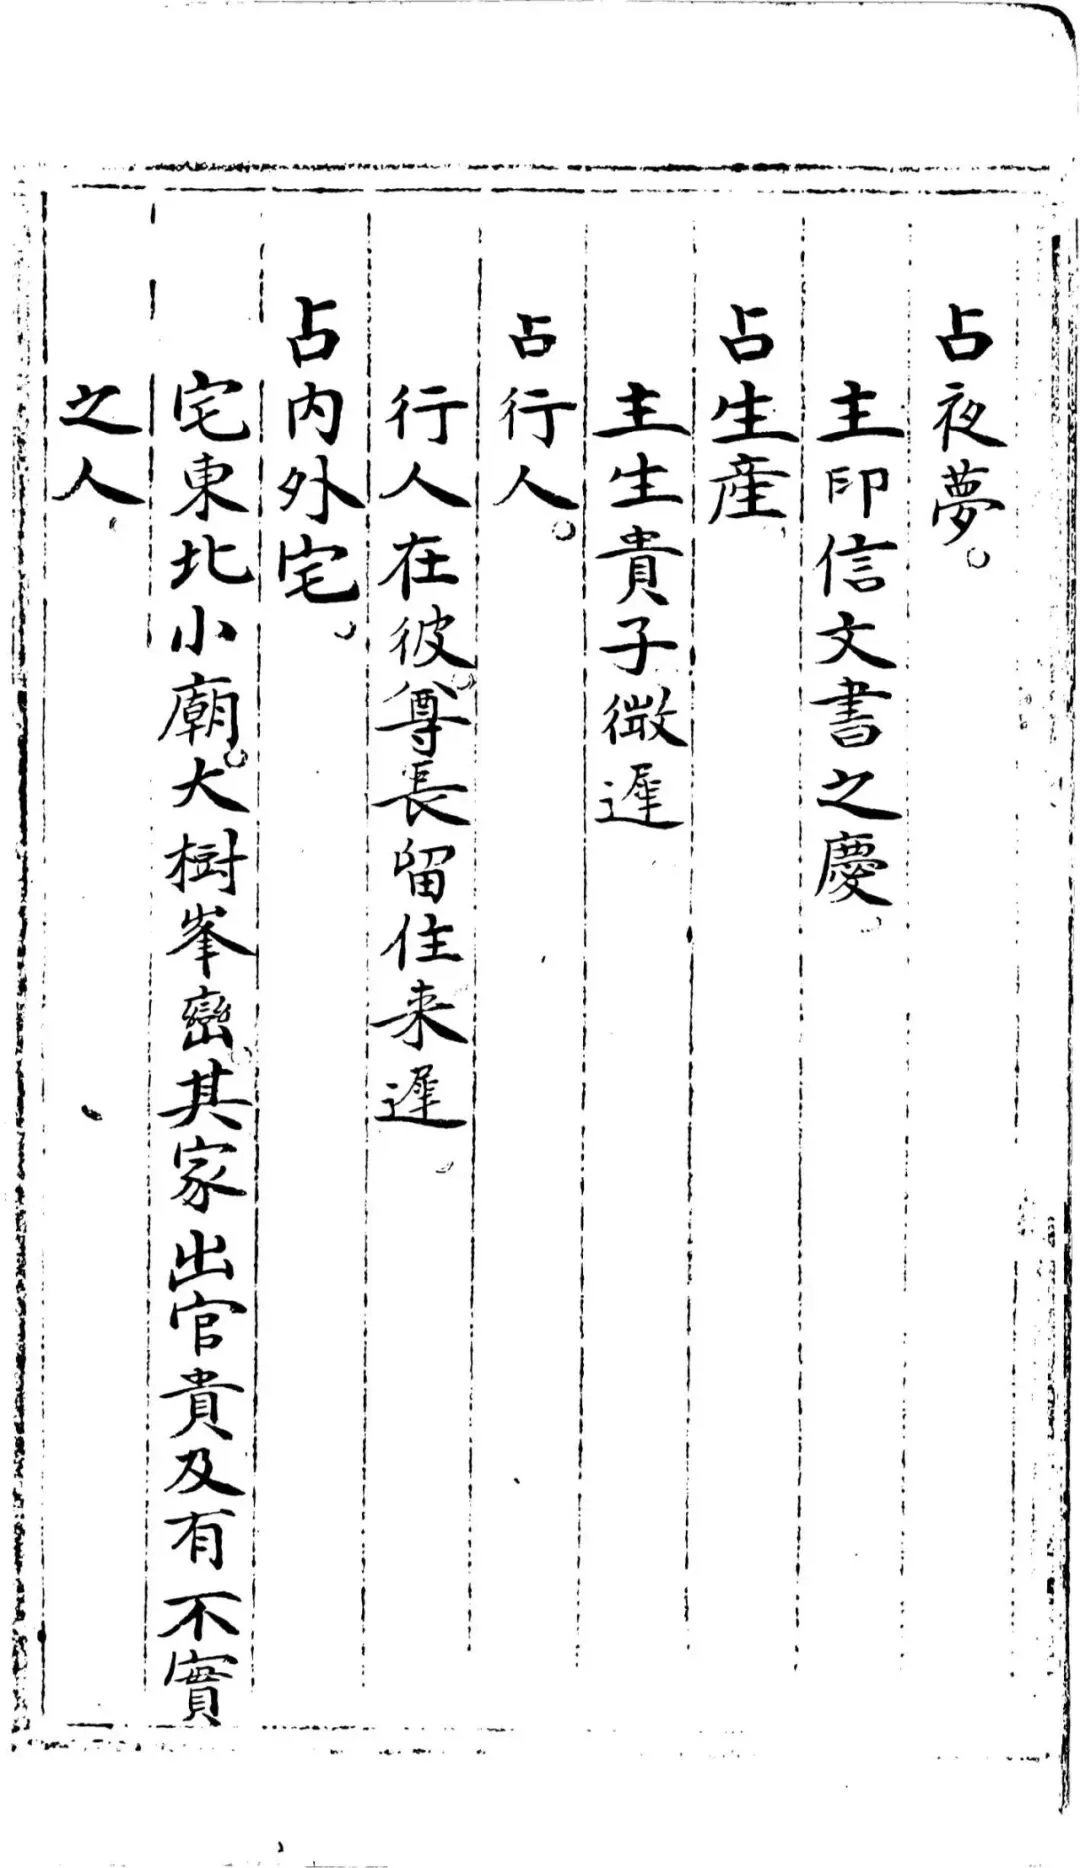 占夜夢。
主印信文書之慶。
占生產。
主生貴子微遲
占行人。
行人在彼。尊長留住来遲。
占内外宅。
宅東北小廟。大樹峯巒。其家出官貴及有不實
之人。